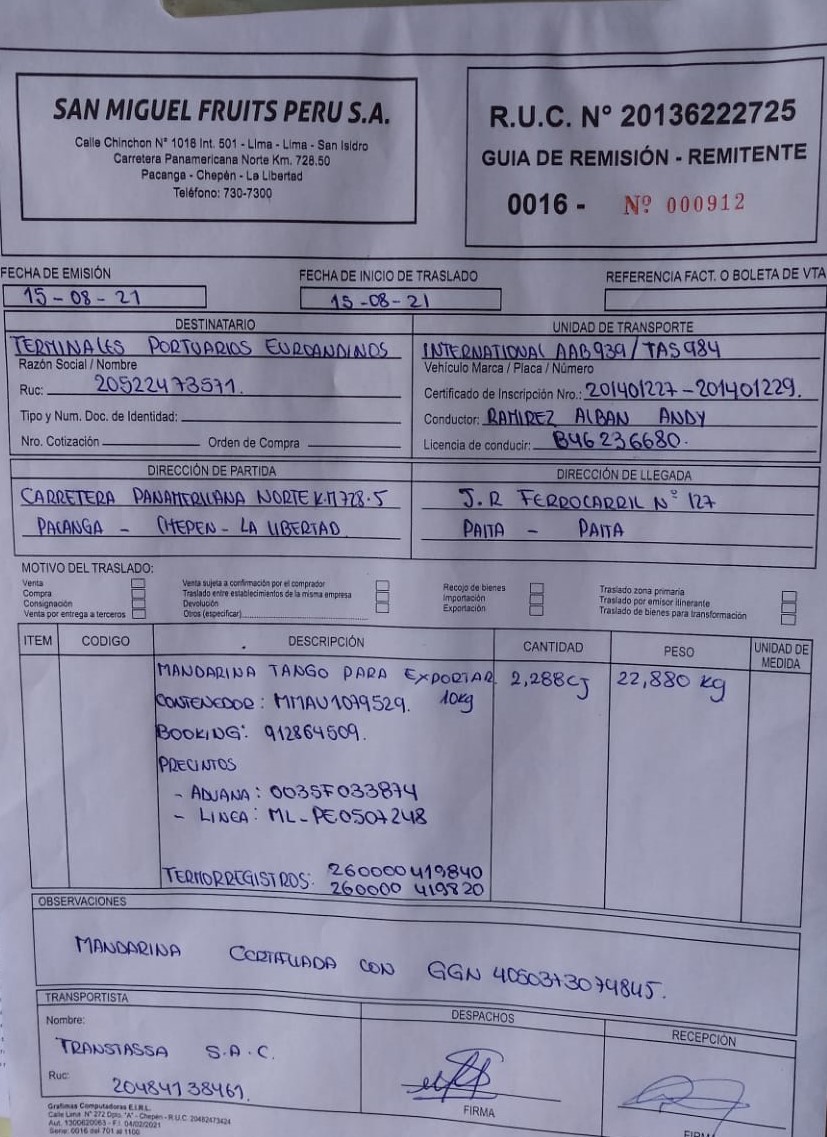 SAN MIGUEL FRUITS PERU S.A.
Calle Chinchon N° 1018 Int. 501 - Lima - Lima - San Isidro
Carretera Panamericana Norte Km. 728.50
Pacanga - Chepén - La Libertad
Teléfono: 730-7300
R.U.C. N° 20136222725
GUIA DE REMISIÓN - REMITENTE
0016 - Nº 000912
FECHA DE EMISIÓN
15-08-21
FECHA DE INICIO DE TRASLADO
15-08-21
REFERENCIA FACT. O BOLETA DE VTA
DESTINATARIO
TERMINALES PORTUARIOS EUROANDINOS
Razón Social / Nombre
Ruc: 20522473571.
Tipo y Num. Doc. de Identidad:
Nro. Cotización Orden de Compra
UNIDAD DE TRANSPORTE
INTERNATIONAL AAB939/TAS984
Vehículo Marca / Placa / Número
Certificado de Inscripción Nro.: 201401227-201401229.
Conductor: RAMIREZ ALBAN ANDY
Licencia de conducir: B46236680.
DIRECCIÓN DE PARTIDA
CARRETERA PANAMERICANA NORTE K.M 728.5
PACANGA - CHEPEN - LA LIBERTAD
DIRECCIÓN DE LLEGADA
J.R FERROCARRIL Nº 127
PAITA - PAITA
MOTIVO DEL TRASLADO:
Venta
Compra
Consignación
Venta por entrega a terceros
Venta sujeta a confirmación por el comprador
Traslado entre establecimientos de la misma empresa
Devolución
Otros (especificar)
Recojo de bienes
Importación
Exportación
Traslado zona primaria
Traslado por emisor itinerante
Traslado de bienes para transformación
ITEM CODIGO DESCRIPCIÓN CANTIDAD PESO UNIDAD DE MEDIDA
MANDARINA TANGO PARA EXPORTAR 2,288CJ 22,880 kg
CONTENEDOR: MMAU1079529. 10kg
BOOKING: 912864509.
PRECINTOS
- ADUANA: 0035F033874
- LINEA: ML-PE0507248
TERMORREGISTROS: 260000419840
260000 419820
OBSERVACIONES
MANDARINA CERTIFICADA CON GGN 4050373074845.
TRANSPORTISTA
Nombre:
TRANSTASSA S.A.C.
Ruc: 20484138461.
DESPACHOS
FIRMA
RECEPCIÓN
FIRMA
Grafimas Computadoras E.I.R.L.
Calle Lima N° 272 Dpto. "A" - Chepén - R.U.C. 20482473424
Aut. 1300620063 - F.I. 04/02/2021
Serie: 0016 del 701 al 1100